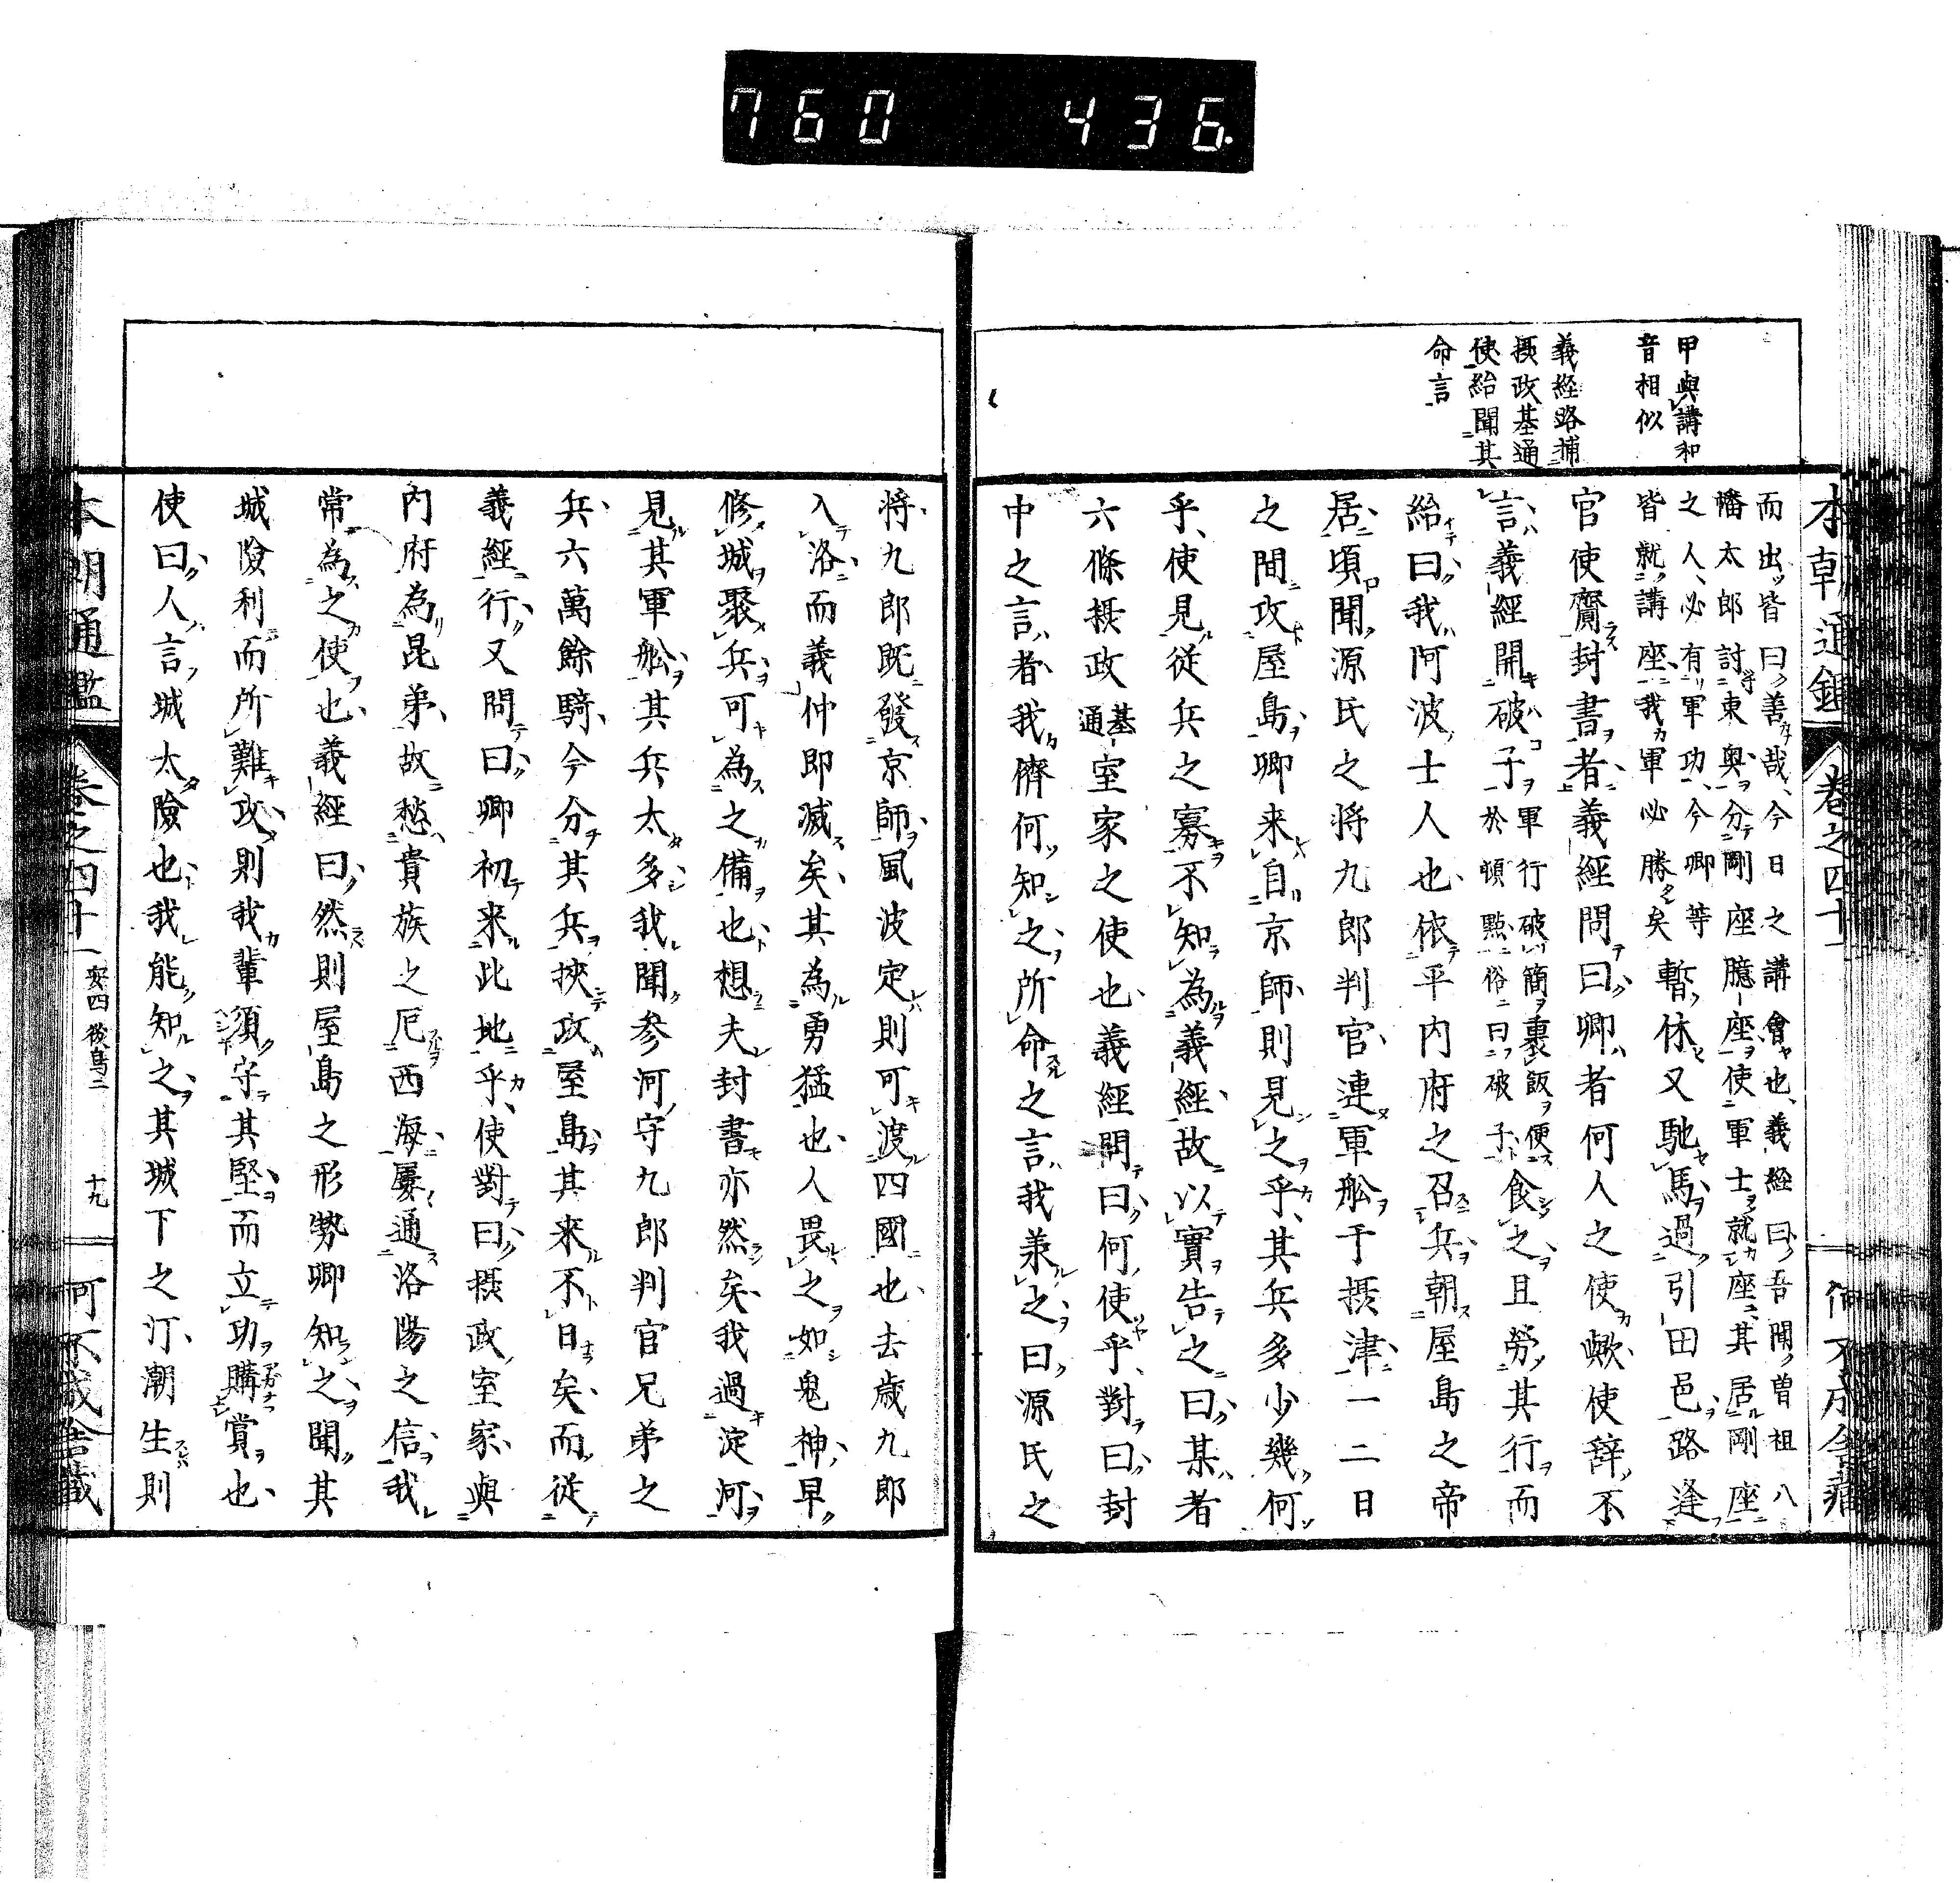 760 436
甲與講和
音相似
義經路捕
摂政基通
使紿聞其
命言
而出皆曰善哉今日之講會也義経曰吾聞曽祖八
幡太郎討東奥分剛座臆座使軍士就座其居剛座
之人必有軍功今卿等
皆就講座我軍必勝矣暫休又馳馬過引田邑路逢
官使齎封書者義經問曰卿者何人之使歟使辞不
言義經開破子於頓軍行破簡裹飯便點俗曰破子食之且勞其行而
紿曰我阿波士人也依平内府之召兵朝屋島之帝
居頃聞源氏之将九郎判官連軍舩于摂津一二日
之間攻屋島卿来自京師則見之乎其兵多少幾何
乎使見従兵之寡不知為義經故以實告之曰某者
六條摂政基通室家之使也義經問曰何使乎對曰封
中之言者我儕何知之所命之言我兼之曰源氏之
将九郎既發京師風波定則可渡四國也去歳九郎
入洛而義仲即滅矣其為勇猛也人畏之如鬼神早
修城聚兵可為之備也想夫封書亦然矣我過淀河
見其軍舩其兵太多我聞参河守九郎判官兄弟之
兵六萬餘騎今分其兵挾攻屋島其来不日矣而従
義經行又問曰卿初来此地乎使對曰摂政室家與
内府為昆弟故愁貴族之厄西海屢通洛陽之信我
常為之使也義經曰然則屋島之形勢卿知之聞其
城險利而所難攻則我輩須守其堅而立功購賞也
使曰人言城太險也我能知之其城下之汀潮生則
本朝通鑑 巻之四十一 安四 後鳥二 十九 可不成舎蔵